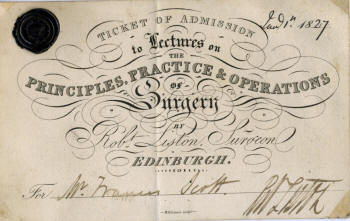 TICKET OF ADMISSION
Jany. 1st. 1827
to Lectures on
THE
PRINCIPLES, PRACTICE & OPERATIONS
OF
Surgery
BY
Robt. Liston, Surgeon
EDINBURGH.
For Mr. Francis Scott